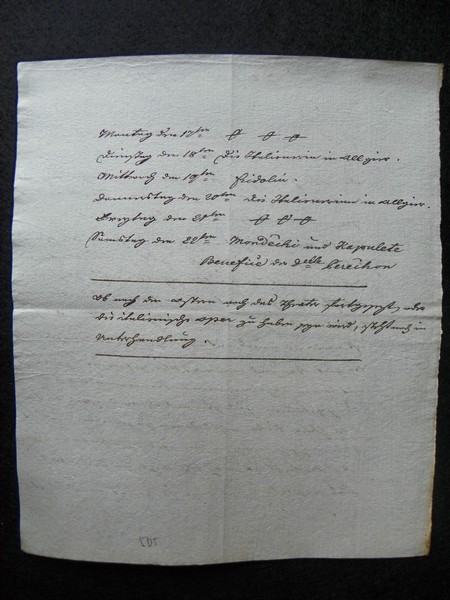 Montag den 17ten
Dienstag den 18ten die Italienerin in Allgier.
Mittwoch den 19ten Fridolin.
Donnerstag den 20ten die Italienerin in Allgier.
Freytag den 21ten
Samstag den 22ten Mondechi und Kapulete
Benefice der Dlle
Ob nach den Ostern noch das Theater fortgesezt, oder
die italienische Oper zu haben seyn wird, steht noch in
Unterhandlung.